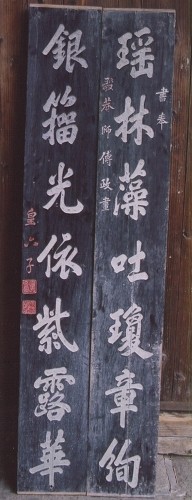 書奉
瑶林藻吐瓊章絢
師傅政畫
銀籀光依紫露華
皇六子